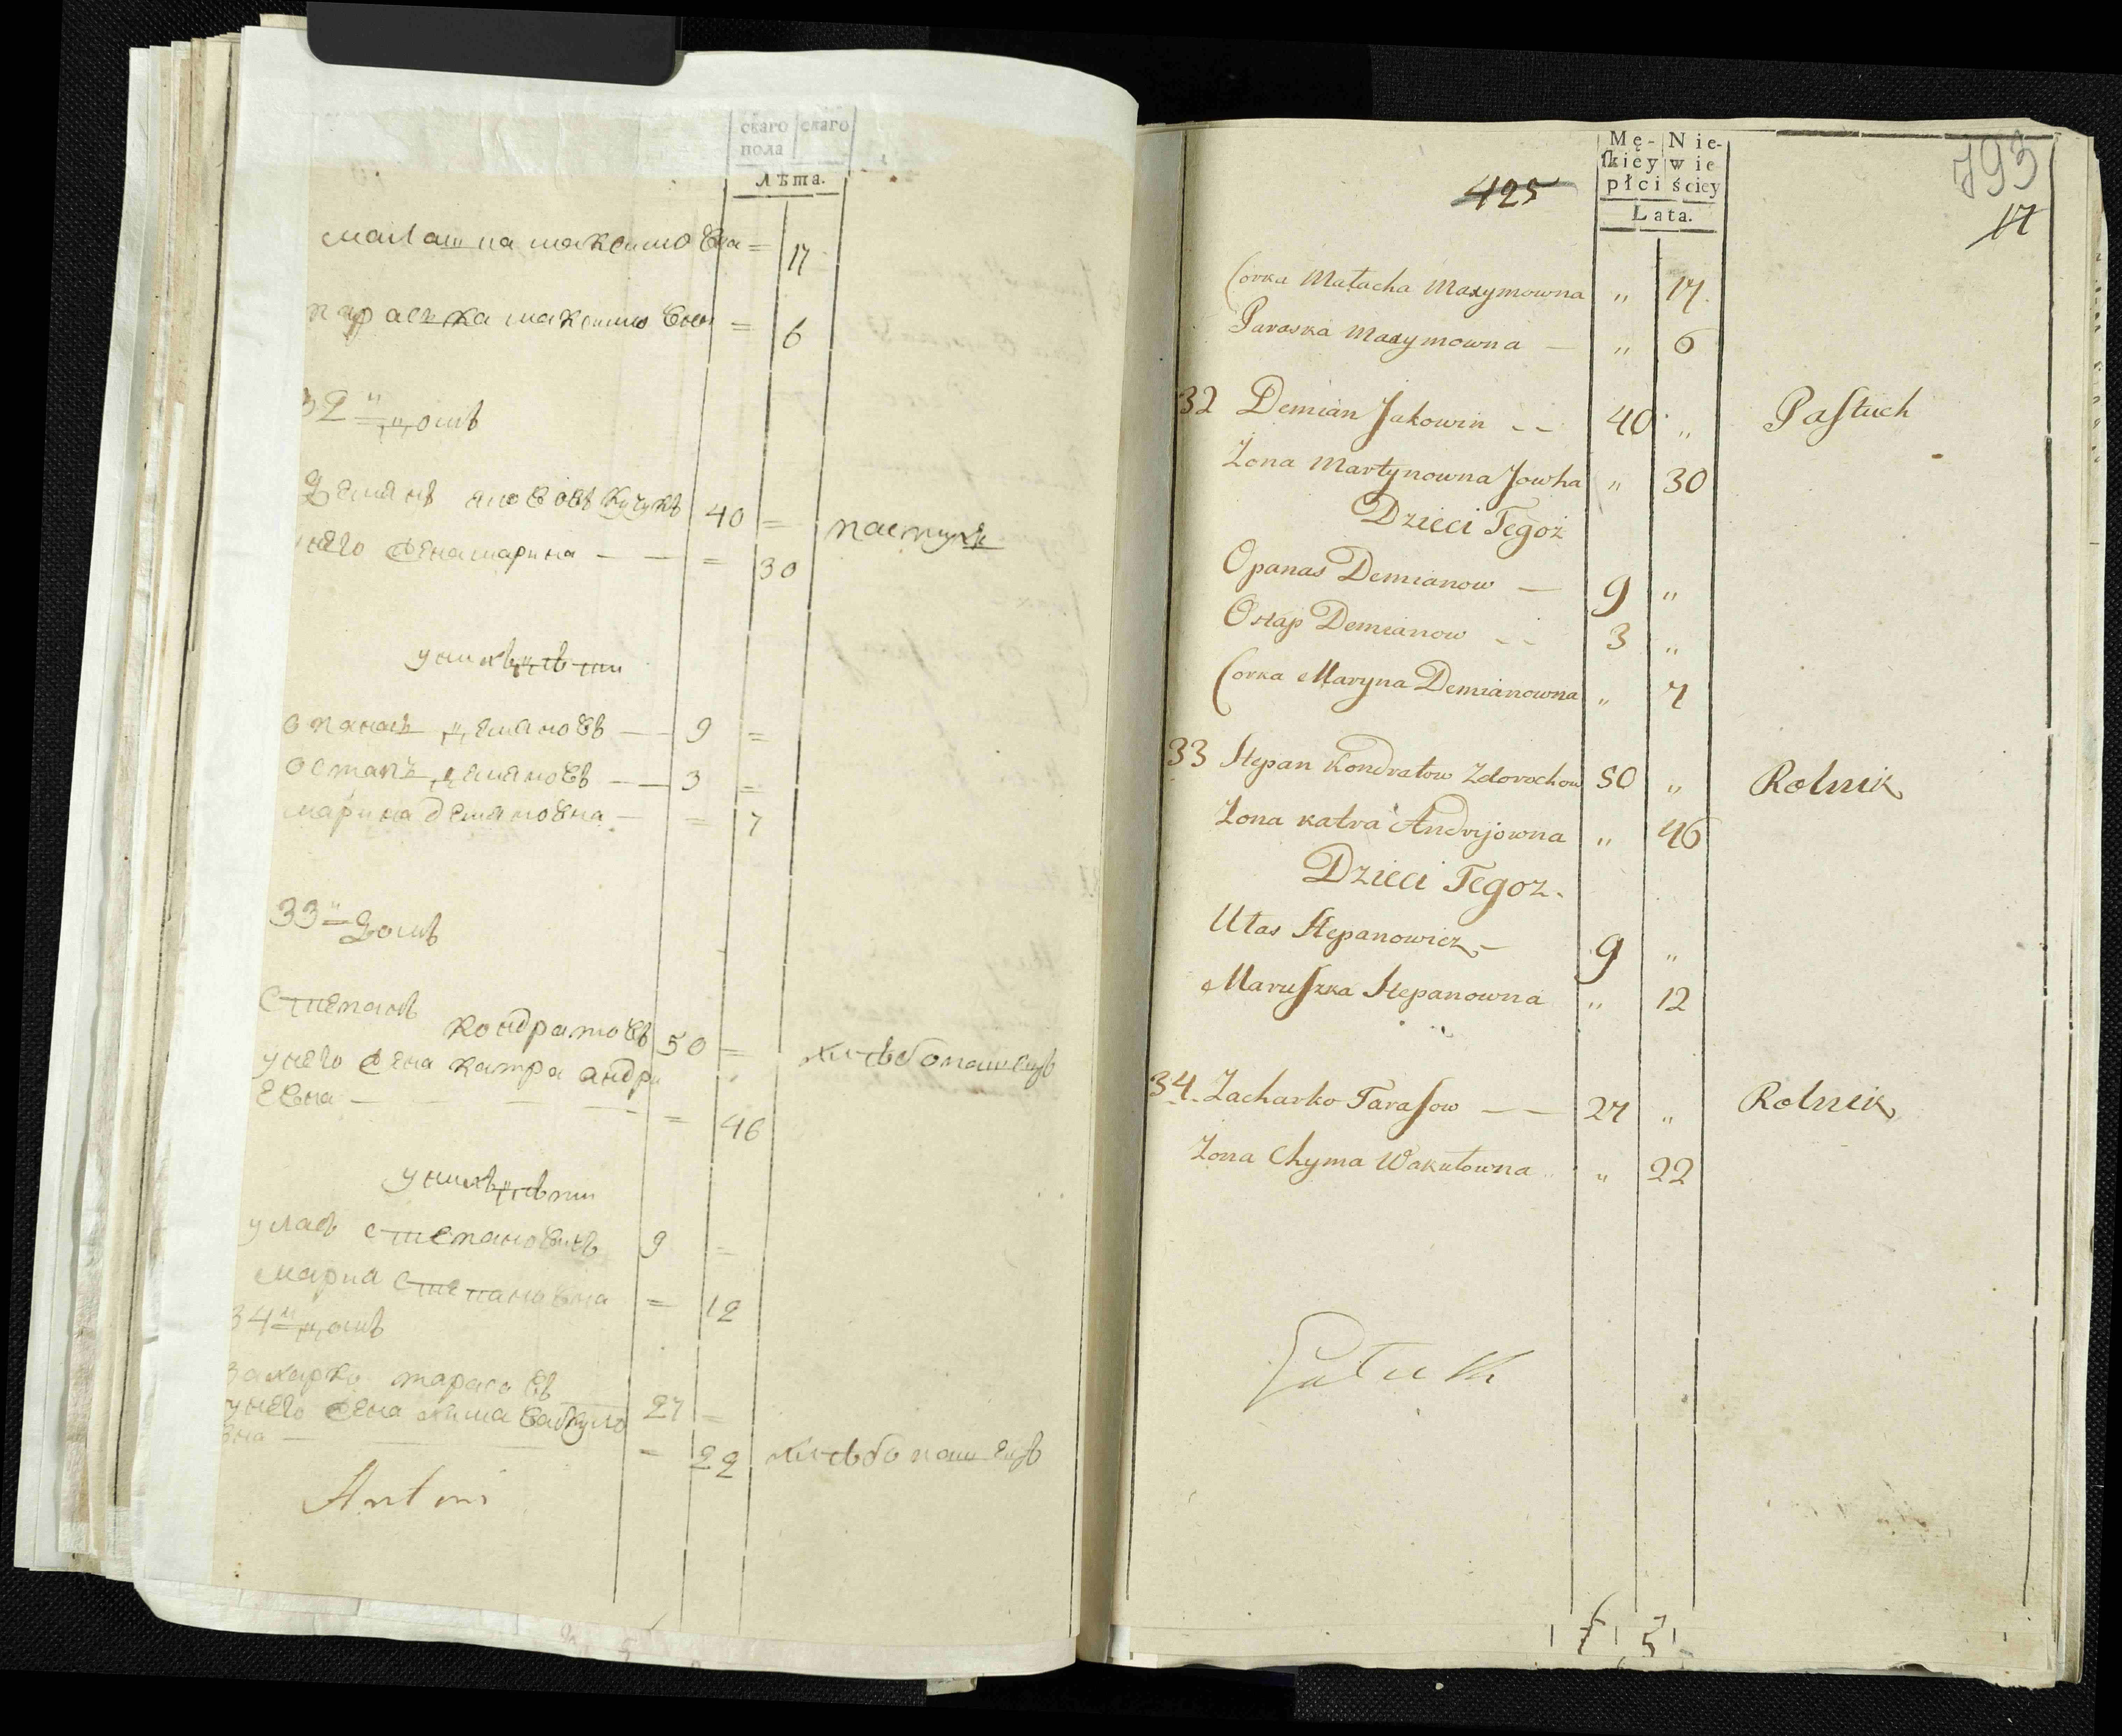 скаго скаго
пола
Лѣта.
малашка максимовна = 17
параска максимовна = 6
32й домъ
Демянъ якововъ кучукъ 40 = пастухъ
унего жена марина — — = 30
унихъ дѣти
опанасъ демяновъ — 9 =
остапъ демяновъ — 3 =
марина демяновна — = 7
33й домъ
Степанъ
кондратовъ 50 = хлѣбопашецъ
унего жена катра андри
евна — = 46
унихъ дѣти
уласъ степановичъ 9 =
мариа степановна = 12
34й домъ
захарко тарасовъ
унего жена хима вакуло 27 =
вна — = 22 хлѣбопашецъ
Antoni
425
Mę- Nie-
ſkiey wie
płci ściey
Lata.
793
17
Corka Małacha Maxymowna „ 17.
Paraska Maxymowna — „ 6
32 Demian Jakowin -- 40 „ Paſtuch
Zona Martynowna Jowha „ 30
Dzieci Tegoż
Opanas Demianow — 9 „
Ostap Demianow -- 3 „
Corka Maryna Demianowna „ 7
33 Stepan Kondratow Zdorochow 50 „ Rolnik
Zona Katra Andryjowna „ 46
Dzieci Tegoz.
Ułas Stepanowicz — 9 „
Maruſzka Stepanowna „ 12
34. Zacharko Taraſow — — 27 „ Rolnik
Zona Chyma Wakułowna „ 22